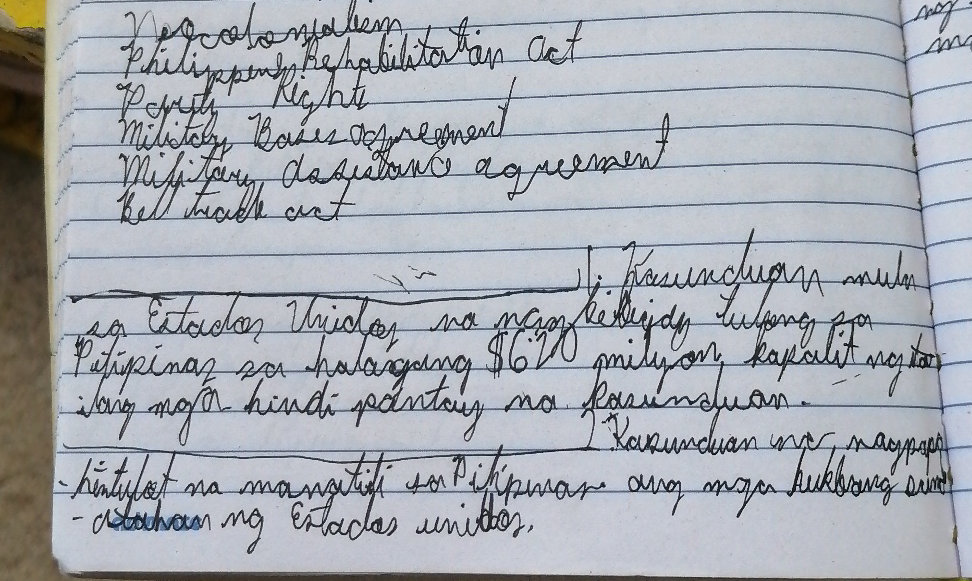 Neocolonialism
Philippines Rehabilitation act
Parity Rights
Military Bases agreement
Military assistance agreement
Bell trade act
1. Kasunduan mula
sa Estados Unidos na nagbibigay tulong sa
Pilipinas sa halagang $620 milyon, kapalit ng
ilang mga hindi pantay na kasunduan.
2. Kasunduan na nagpapa
-hintulot na manatili sa Pilipinas ang mga hukbong sand
-atahan ng Estados unidos.